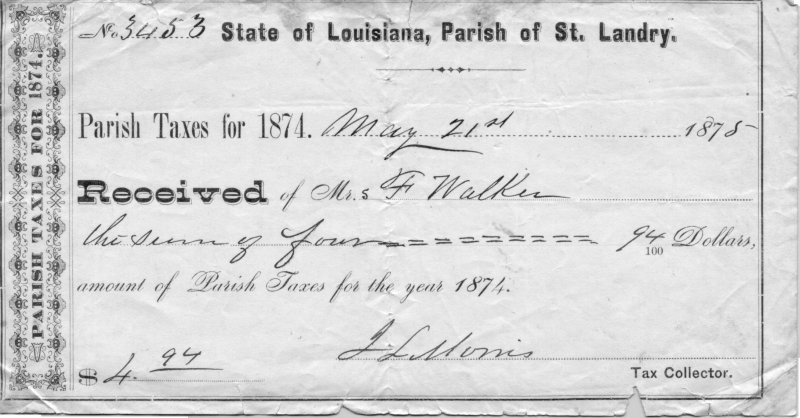 No. 3453 State of Louisiana, Parish of St. Landry.
PARISH TAXES FOR 1874.
Parish Taxes for 1874. May 21st 1875
Received of Mr.s F Walker
the sum of four ========== 94/100 Dollars,
amount of Parish Taxes for the year 1874.
J L Morris
$ 4. 94
Tax Collector.